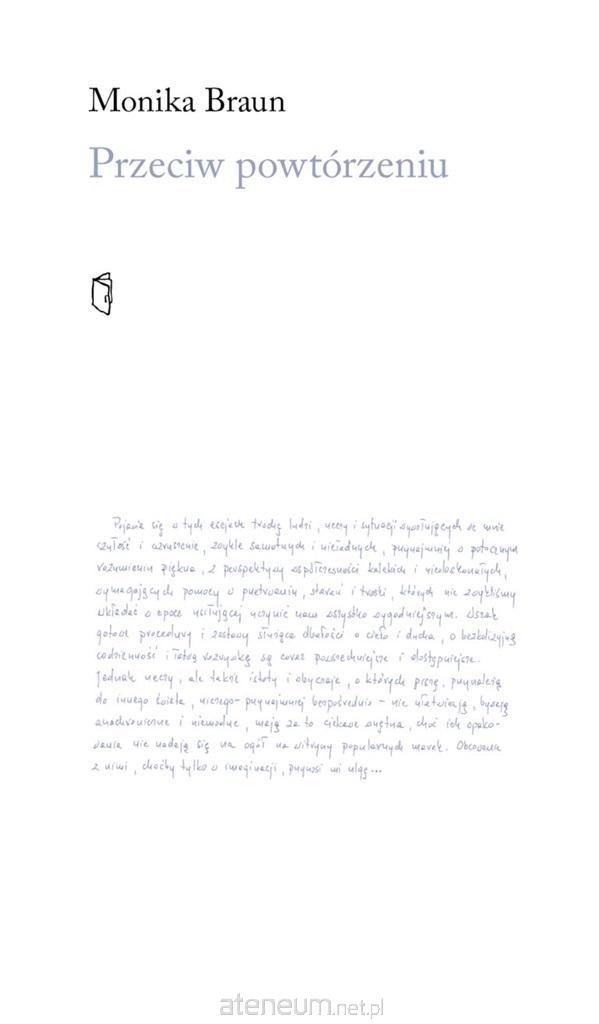 Monika Braun
Przeciw powtórzeniu
Pojawia się w tych esejach trochę ludzi, rzeczy i sytuacji wywołujących we mnie
czułość i wzruszenie, zwykle samotnych i nieładnych, przynajmniej w potocznym
rozumieniu piękna, z perspektywy współczesności kalekich i niedoskonałych,
wymagających pomocy w przetrwaniu, starań i troski, których nie zwykliśmy
wkładać w epoce usiłującej uczynić nam wszystko wygodniejszym. Wszak
gotowe procedury i zestawy służące dbałości o ciało i ducha, o bezkolizyjną
codzienność i łatwą rozrywkę są coraz powszechniejsze i dostępniejsze.
Jednak rzeczy, ale także istoty i obyczaje, o których piszę, przynależą
do innego świata, niczego – przynajmniej bezpośrednio – nie ułatwiają, bywają
anachroniczne i niemodne, mają za to ciekawe wnętrza, choć ich opako-
wania nie nadają się na ogół na witryny popularnych marek. Obcowanie
z nimi, choćby tylko w imaginacji, przynosi mi ulgę...
ateneum.net.pl